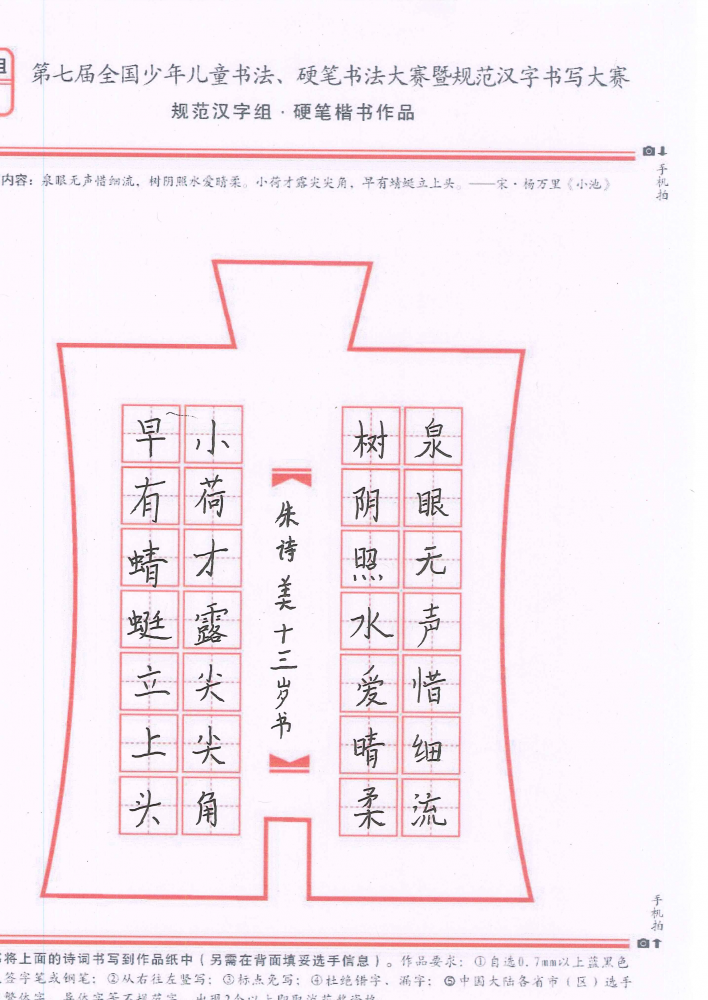 组
第七届全国少年儿童书法、硬笔书法大赛暨规范汉字书写大赛
规范汉字组·硬笔楷书作品
手机拍
内容：泉眼无声惜细流，树阴照水爱晴柔。小荷才露尖尖角，早有蜻蜓立上头。——宋·杨万里《小池》
泉眼无声惜细流
树阴照水爱晴柔
朱诗美十三岁书
小荷才露尖尖角
早有蜻蜓立上头
手机拍
将上面的诗词书写到作品纸中（另需在背面填妥选手信息）。作品要求：①自选0.7mm以上蓝黑色
签字笔或钢笔；②从右往左竖写；③标点免写；④杜绝错字、漏字；⑤中国大陆各省市（区）选手
繁体字、异体字等不规范字，出现2个以上即取消获奖资格